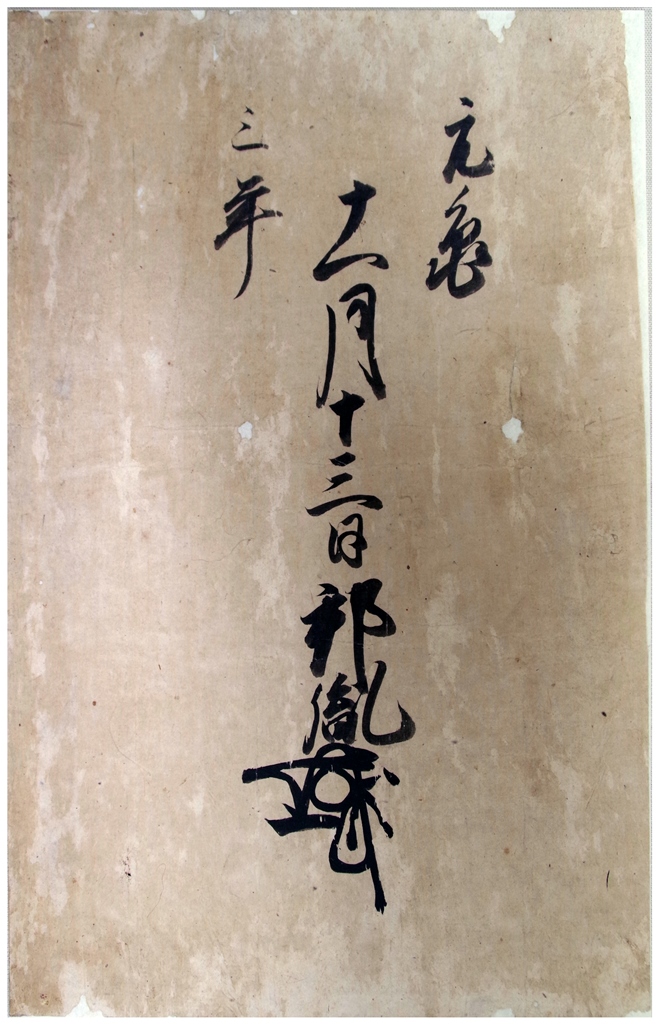 元亀
三年
十一月十三日 邦胤